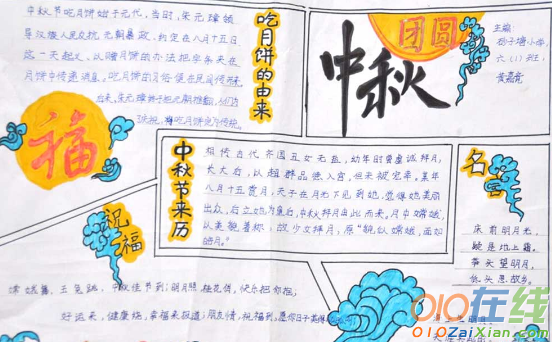 中秋节吃月饼始于元代,当时,朱元璋领
导汉族人民反抗元朝暴政,约定在八月十五日
这一天起义,以赠月饼的办法把字条夹在
月饼中传递消息。吃月饼的习俗便在民间传开来
后来,朱元璋终于把元朝推翻,
吃月饼的由来
福
中秋
团圆
主编:
六(1)班:
中秋节来历
相传古代齐国丑女无盐,幼年时曾虔诚拜月,
长大后,以超群品德入宫,但未被宠幸。某年
八月十五赏月,天子在月光下见到她,觉得她美丽
出众,后立她为皇后,中秋拜月由此而来。月中嫦娥,
以美貌著称,故少女拜月,愿“貌似嫦娥,面如
皓月。”
名言
床前明月光,
疑是地上霜。
举头望明月,
低头思故乡。
祝福
嫦娥舞,玉兔跳,中秋佳节到;明月照,桂花俏,快乐把你抱;
好运来,健康绕,幸福来报道;朋友情,祝福到,愿你日子
010在线
010ZaiXian.Com